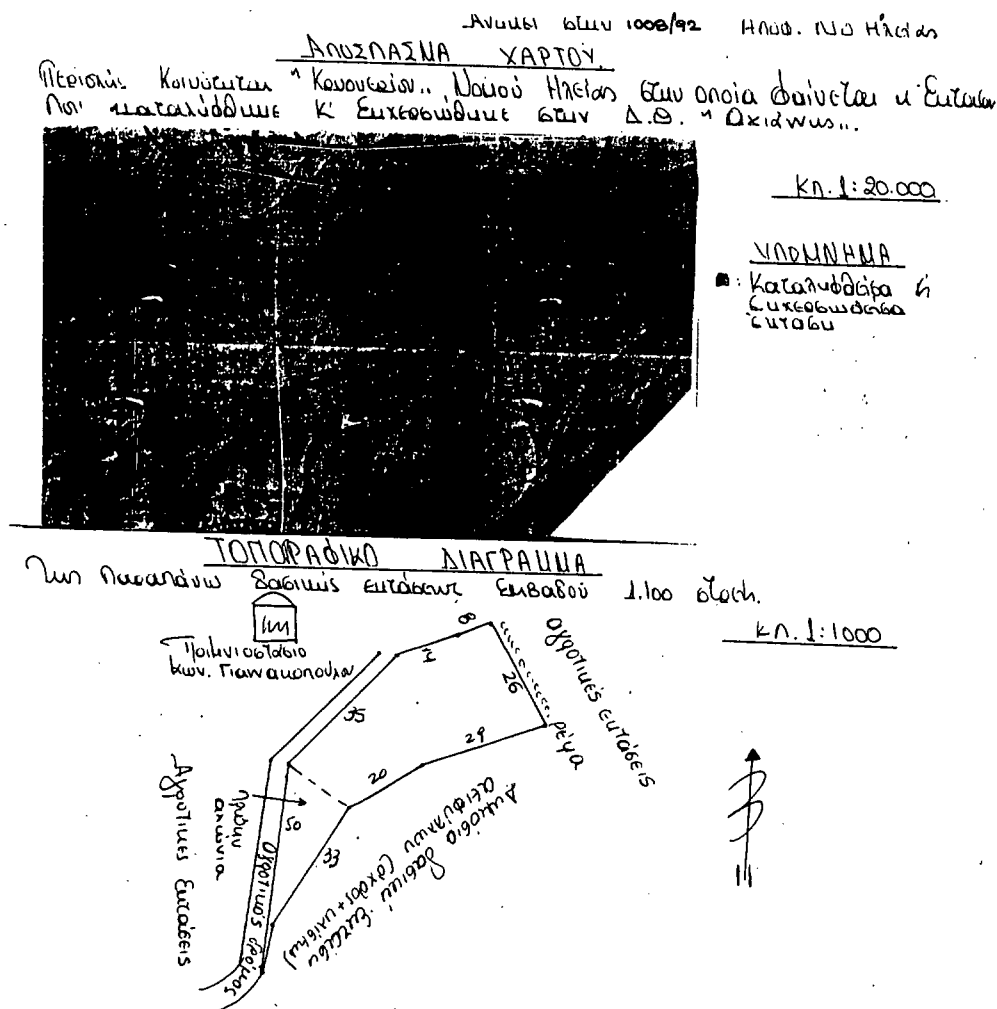 Ανήκει στην 1008/92 Ηλείας
ΑΠΟΣΠΑΣΜΑ ΧΑΡΤΟΥ.
Περιοχής Κοινότητας " Νομού Ηλείας στην οποία φαίνεται η Έκταση
Που καταλήφθηκε κ' Εκχερσώθηκε στην Δ.Θ. "
ΚΛ. 1:20.000
ΥΠΟΜΝΗΜΑ
: Καταληφθείσα ή
Εκχερσωθείσα
Έκταση
ΤΟΠΟΓΡΑΦΙΚΟ ΔΙΑΓΡΑΜΜΑ
Της Παραπάνω δασικής εκτάσεως Εμβαδού 1.100 στρεμ.
ΚΛ. 1:1000
Ποιμνιοστάσιο
Κων. Γιαννακοπούλου
8
14
35
26
αγροτικές εκτάσεις
ρέμα
29
20
Πρώην
αλώνια
50
33
Αγροτικές Εκτάσεις
Αγροτικός δρόμος
Δημόσια δασική έκταση
αειφύλλων (όχθος + κλίση)